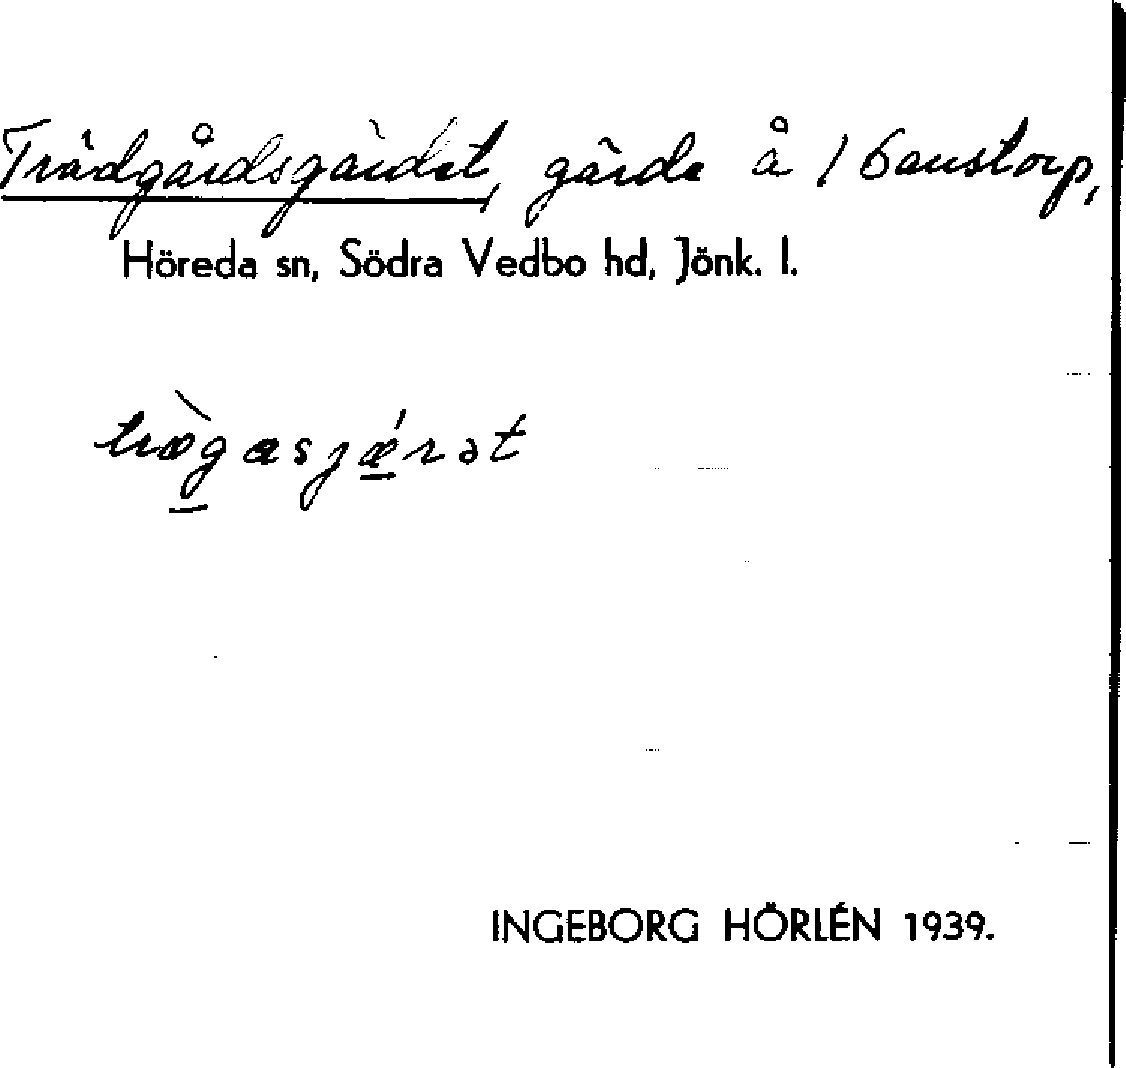 Trädgårdsgärdet, gärde å /
Höreda sn, Södra Vedbo hd, Jönk. l.
INGEBORG HÖRLÉN 1939.